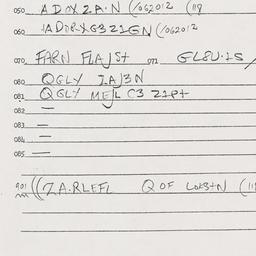 050 ADMXZ.A.N (/062012 (119
060 .1ADDRXG3Z1GN (/062012
070 FARN FLAJST 071 GL8U.1S/
080 QGLY ZAJ3N
081 QGLY MEJL C3 Z1P+
082 —
083 —
084 —
085 —
901 ((Z.A.RLEFL Q OF LOKS+N (11